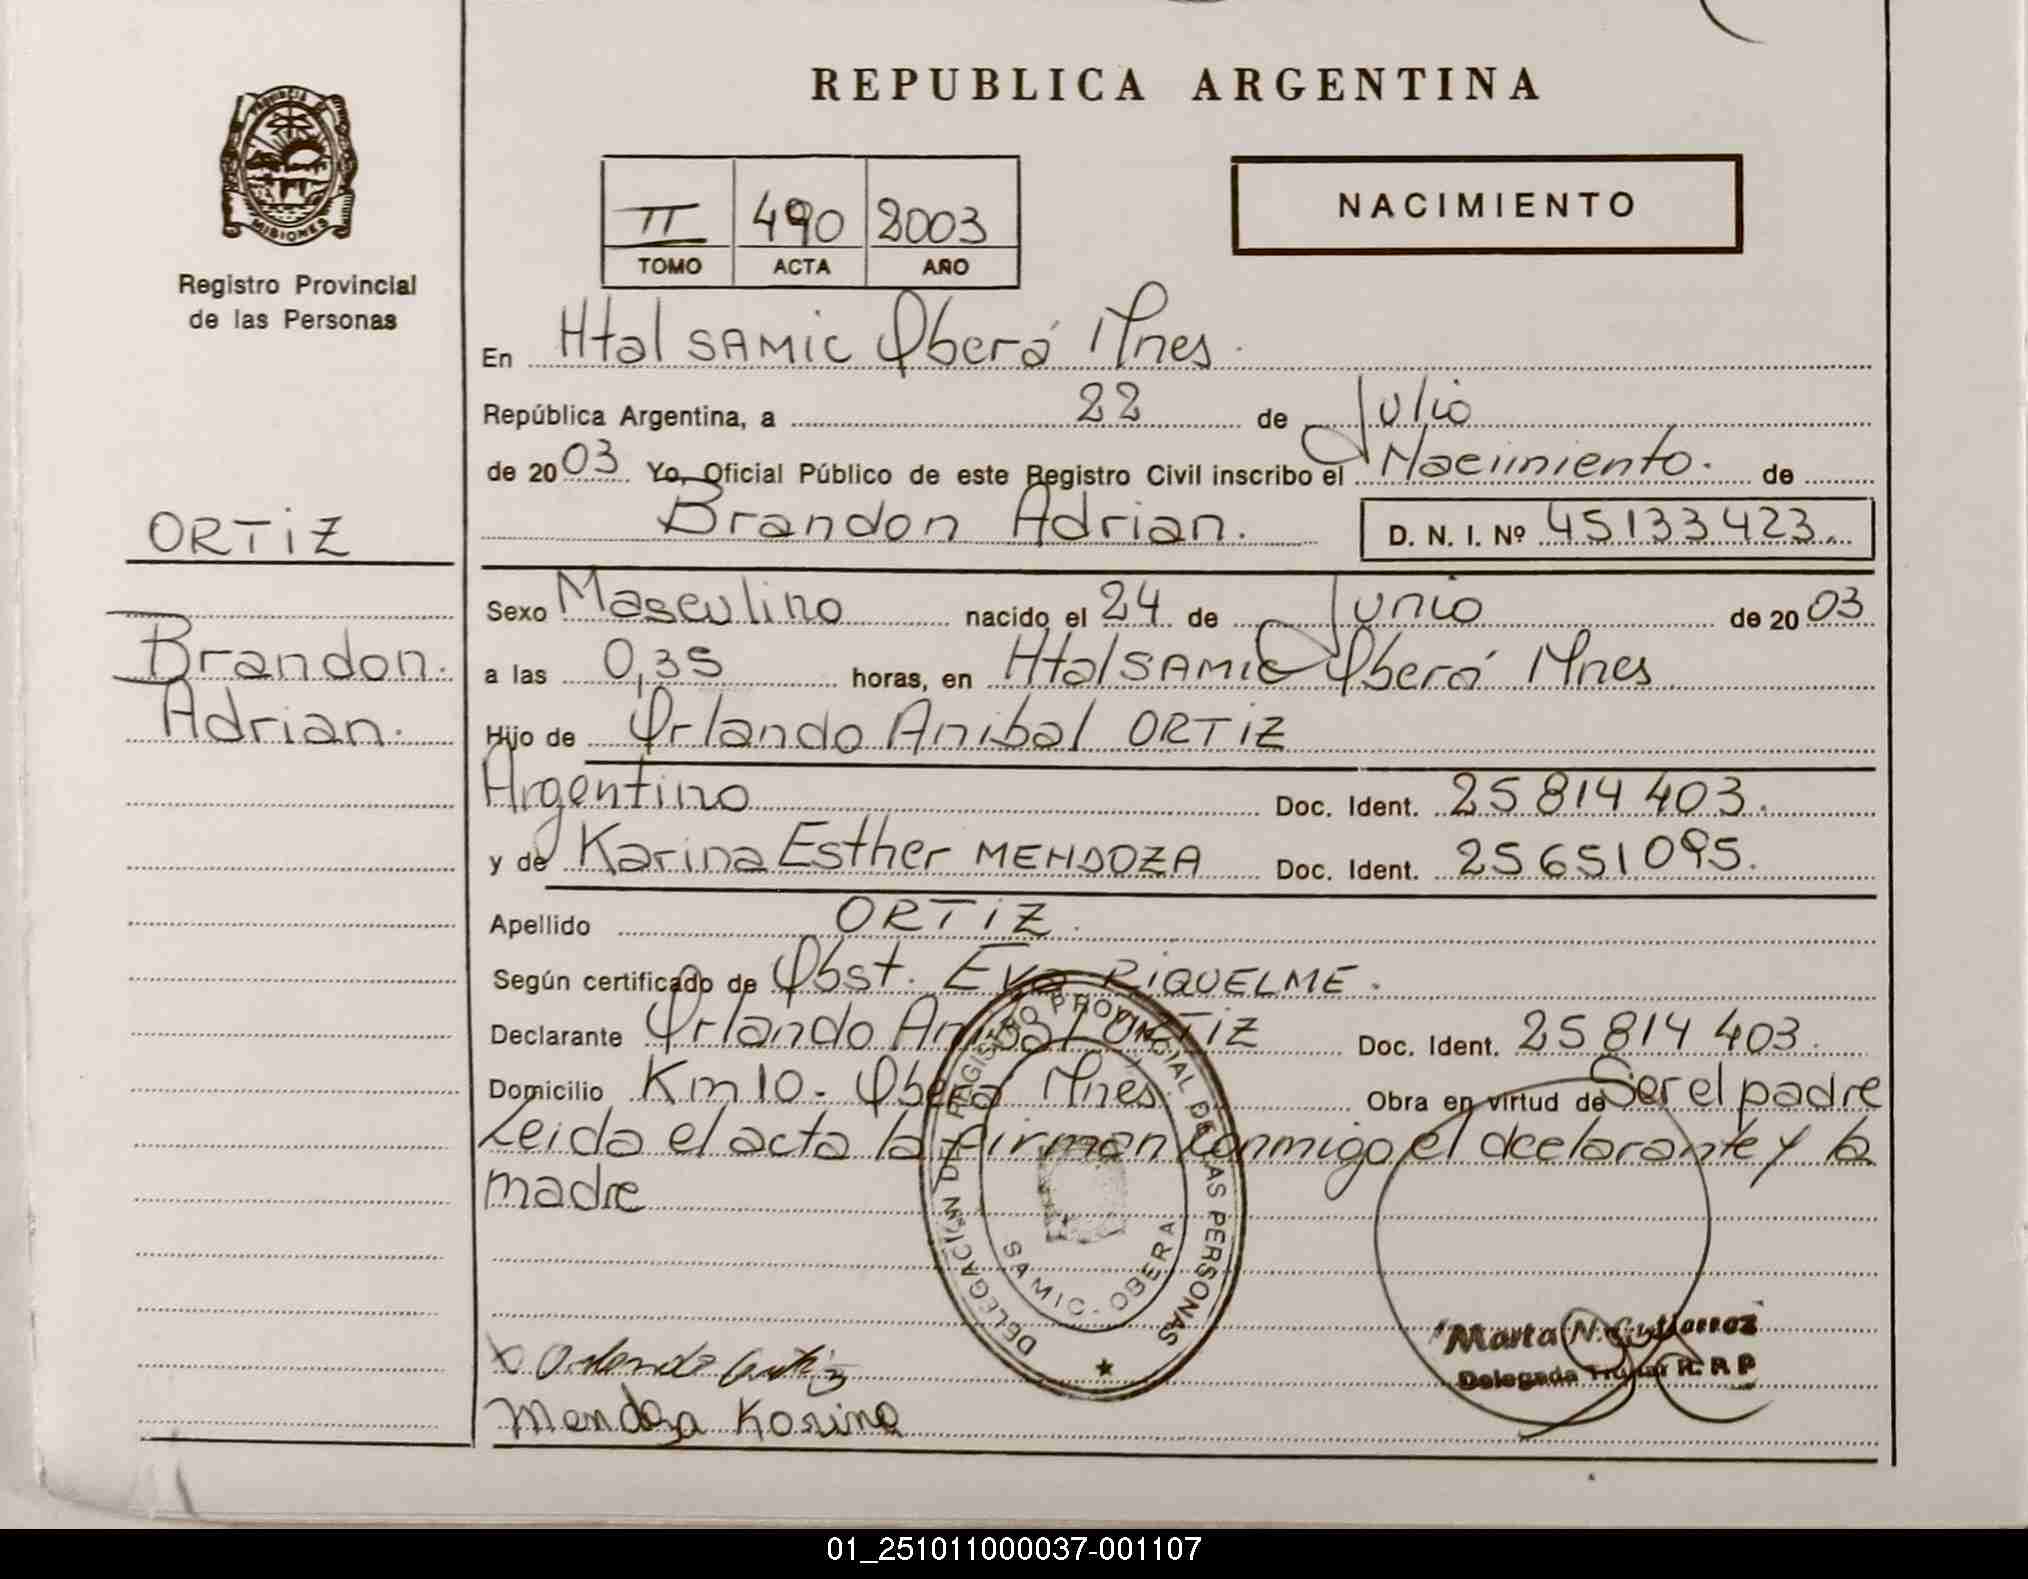 REPUBLICA ARGENTINA
PROVINCIA DE MISIONES
Registro Provincial
de las Personas
II 490 2003
TOMO ACTA AÑO
NACIMIENTO
En Htal SAMIC Oberá Mnes.
República Argentina, a 22 de Julio
de 2003. Yo, Oficial Público de este Registro Civil inscribo el Nacimiento. de
Brandon Adrian. D. N. I. Nº 45133423.
ORTiZ
Brandon.
Adrian.
Sexo Masculino nacido el 24 de Junio de 2003
a las 0,35 horas, en Htal SAMIC Oberá Mnes
Hijo de Orlando Anibal ORTiZ
Argentino Doc. Ident. 25 814 403.
y de Karina Esther MENDOZA Doc. Ident. 25651095.
Apellido ORTiZ.
Según certificado de Obst. Eva RIQUELME.
Declarante Orlando Anibal ORTiZ Doc. Ident. 25 814 403.
Domicilio Km 10 - Oberá Mnes. Obra en virtud de Ser el padre
Leida el acta la firman conmigo el declarante y la
madre
DELEGACIÓN DEL REGISTRO PROVINCIAL DE LAS PERSONAS
SAMIC - OBERA
x Orlando Ortiz
Mendoza Karina
Marta N. Gutierrez
Delegada Titular R. P. P
01_251011000037-001107